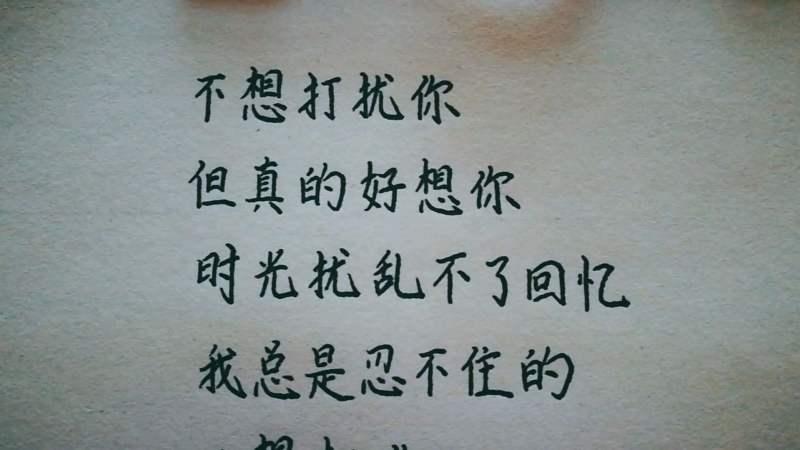 不想打扰你
但真的好想你
时光扰乱不了回忆
我总是忍不住的
想